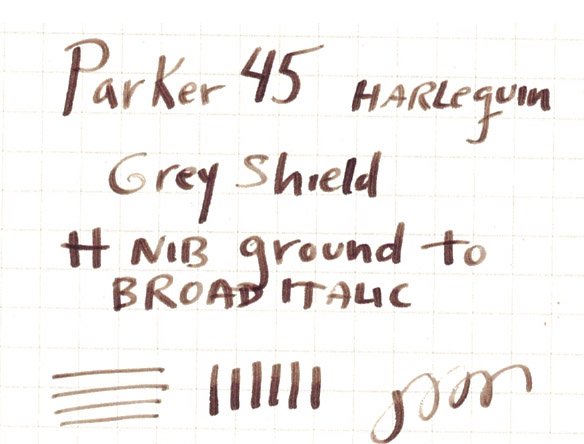 Parker 45 HARLequin
Grey Shield
H NIB ground to
BROAD ITALIC